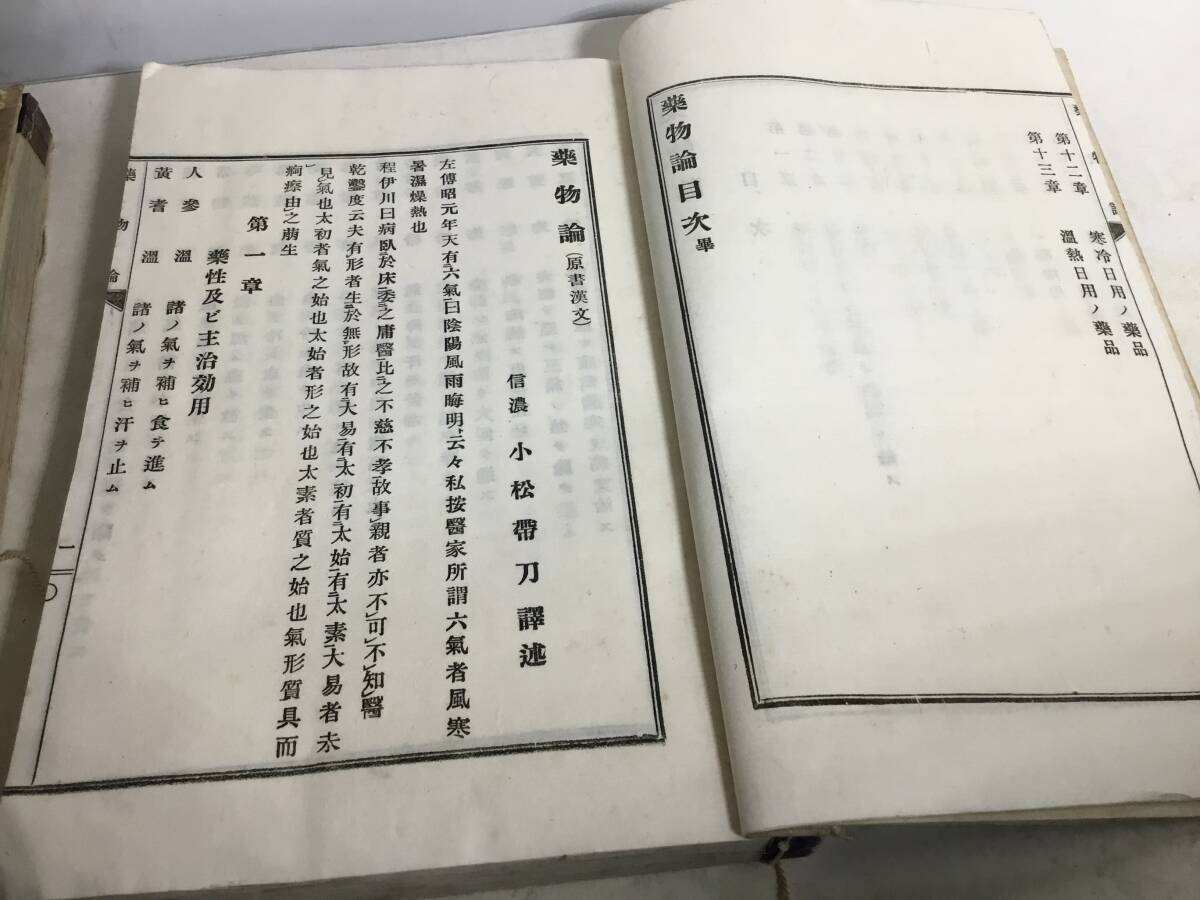 第十二章　寒冷日用ノ藥品
第十三章　溫熱日用ノ藥品
藥物論目次畢
藥物論（原書漢文）
信濃　小松帶刀譯述
左傳昭元年天有六氣曰陰陽風雨晦明云々私按醫家所謂六氣者風寒
暑濕燥熱也
程伊川曰病臥於床委之庸醫比之不慈不孝故事親者亦不可不知醫
乾鑿度云夫有形者生於無形故有大易有太初有太始有太素大易者未
見氣也太初者氣之始也太始者形之始也太素者質之始也氣形質具而
痾瘵由之萠生
第一章
藥性及ビ主治効用
人參　溫　諸ノ氣ヲ補ヒ食ヲ進ム
黃耆　溫　諸ノ氣ヲ補ヒ汗ヲ止ム
藥物論